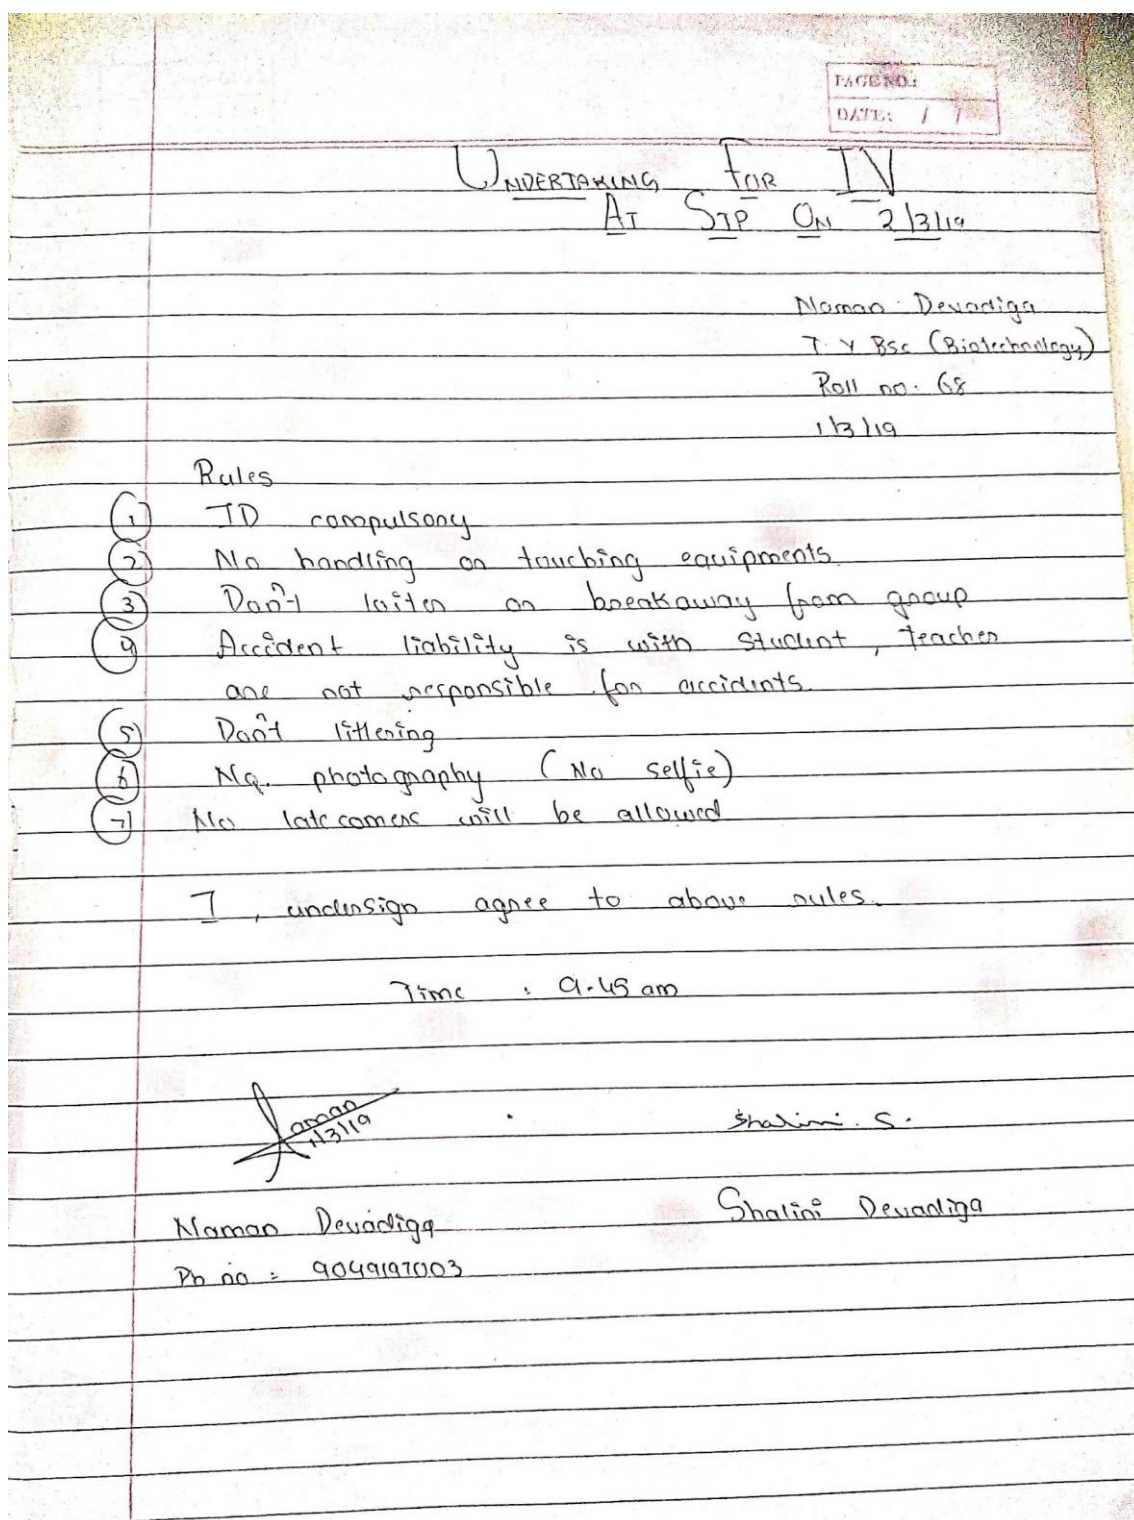 PAGE NO.:
DATE: / /
UNDERTAKING FOR IV
AT STP ON 2/3/19
Naman Devadiga
T. Y BSc (Biotechnology)
Roll no. 68
1/3/19
Rules
1 ID compulsory
2 No handling or touching equipments.
3 Don't loiter or breakaway from group
4 Accident liability is with student, teacher
are not responsible for accidents.
5 Don't littering
6 No. photography (No selfie)
7 No late comers will be allowed
I, undersign agree to above rules.
Time : 9.45 am
Naman
1/3/19
Shalini. S.
Naman Devadiga
Shalini Devadiga
Ph no : 9049197003